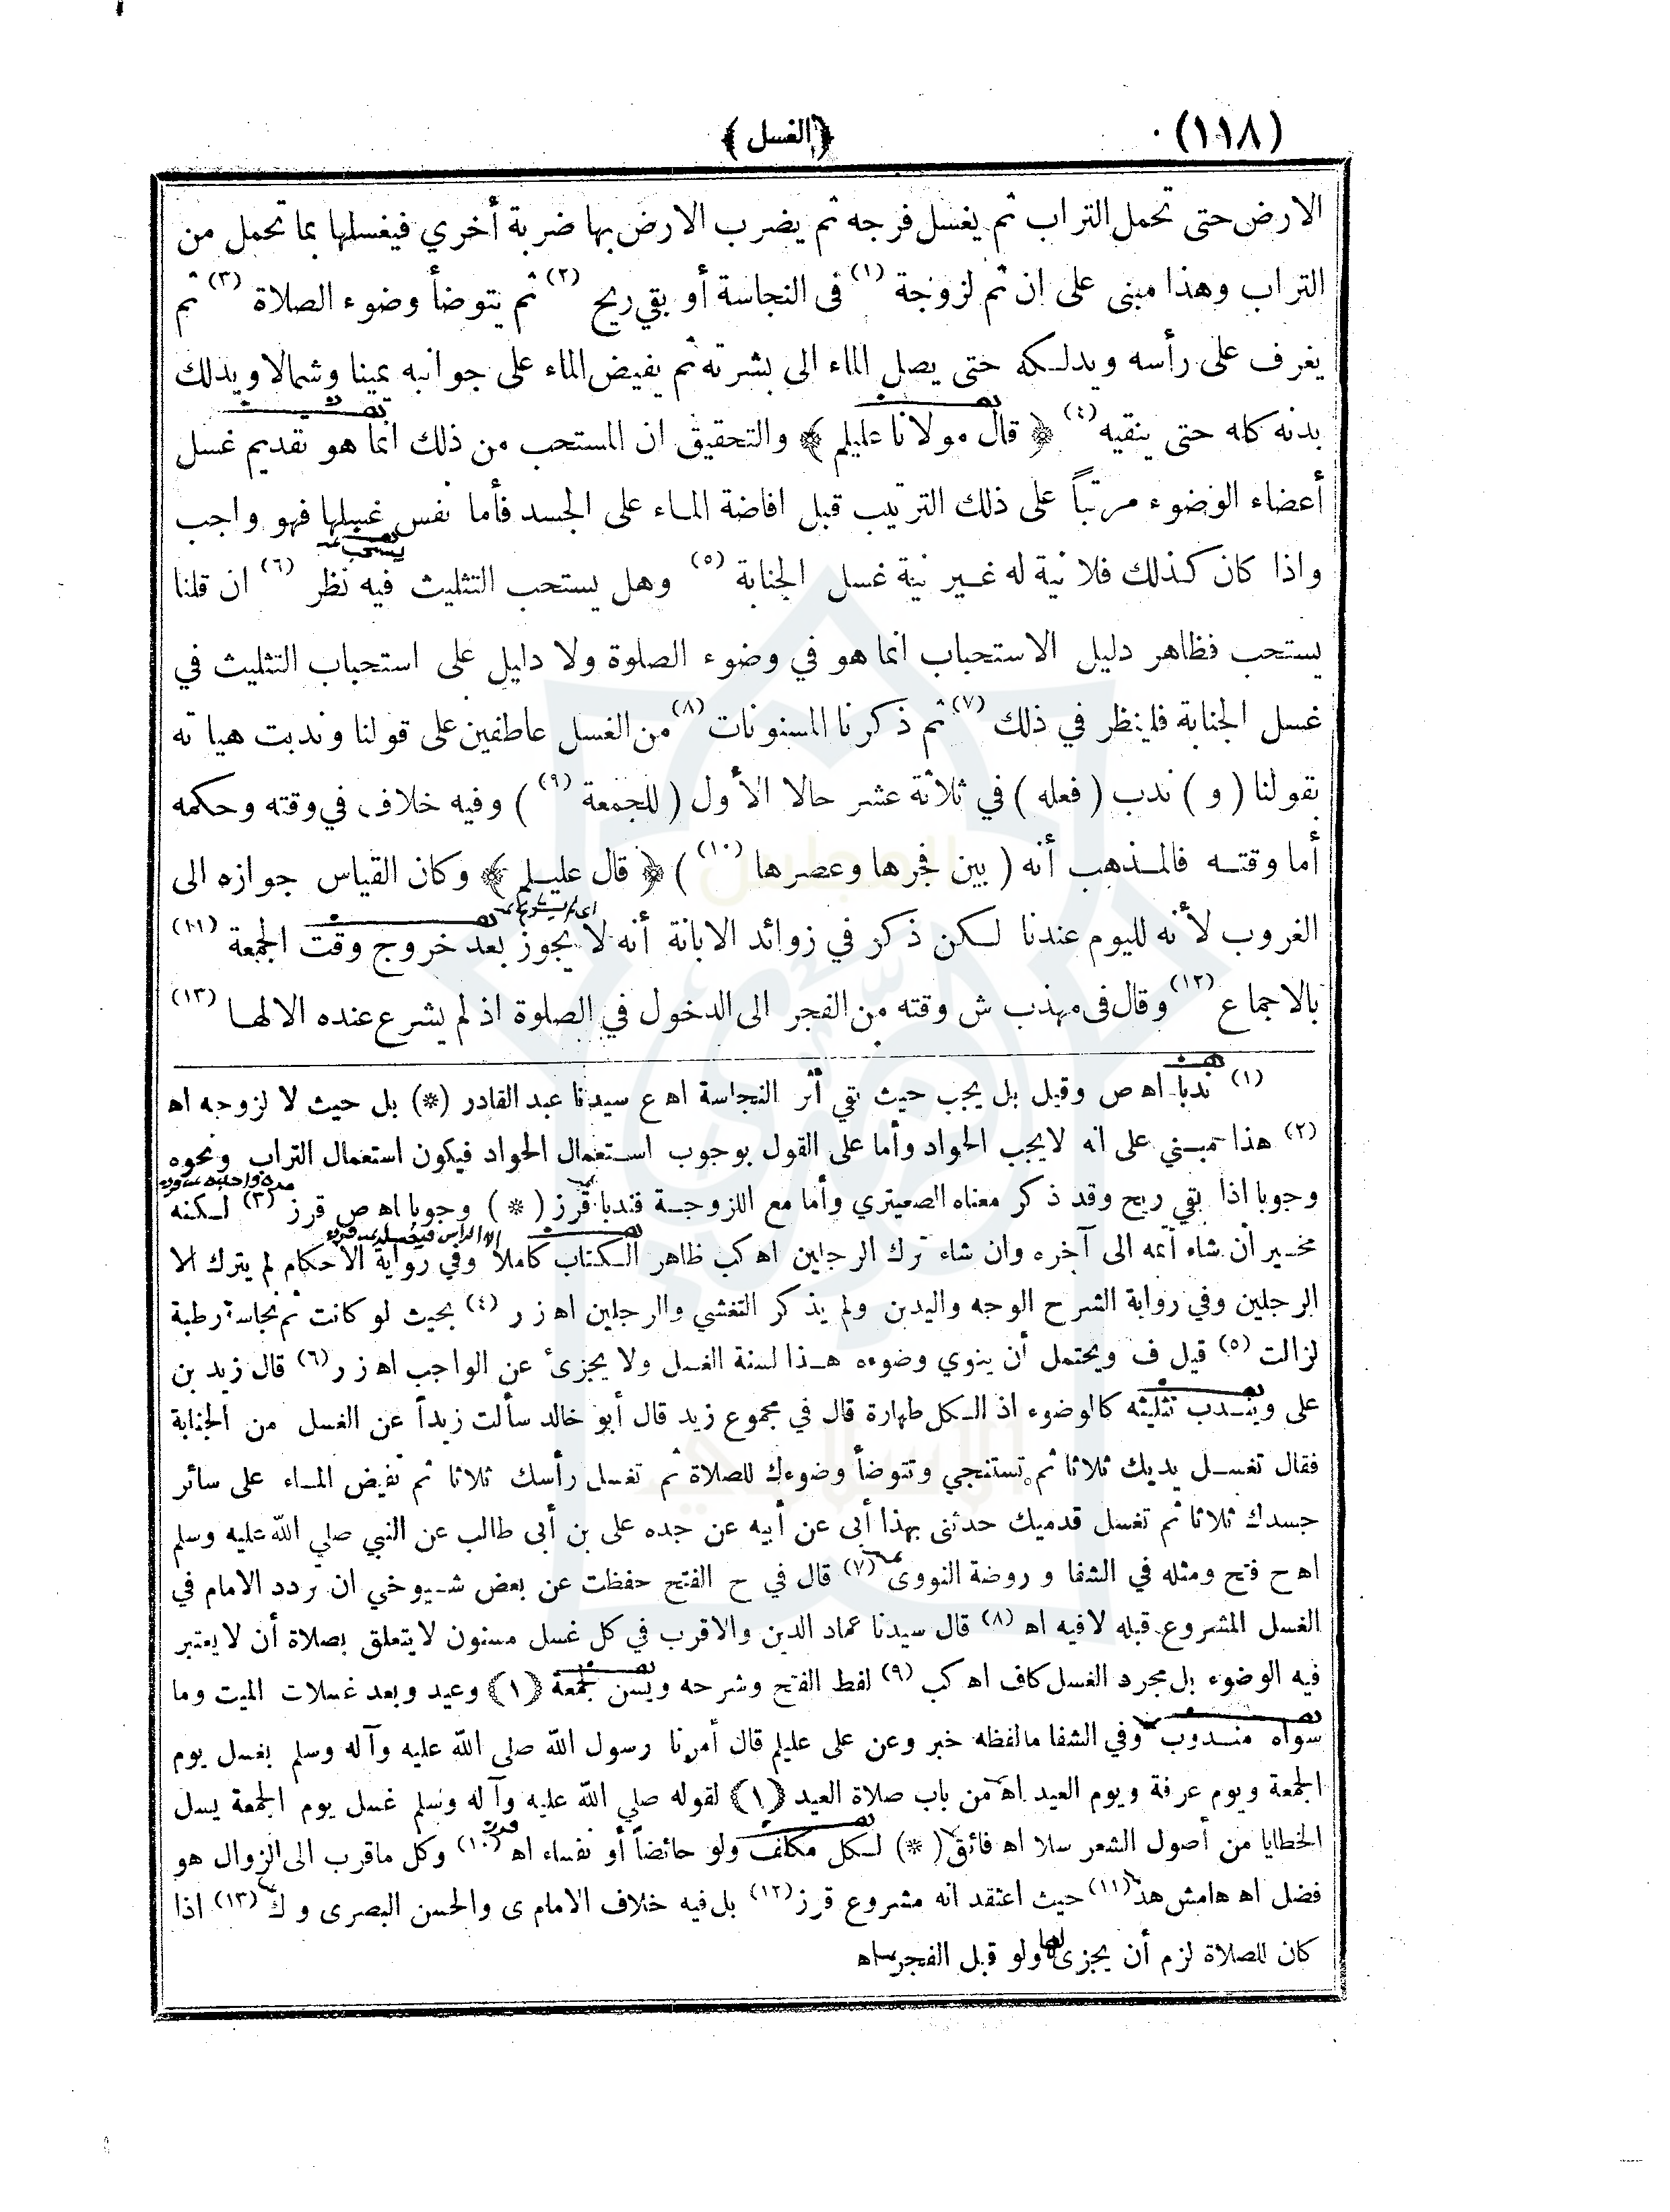 (١١٨)
﴿الغسل﴾
الارض حتى تحمل التراب ثم يغسل فرجه ثم يضرب الارض بها ضربة أخري فيغسلها بما تحمل من
التراب وهذا مبنى على ان ثم لزوجة (١) فى النجاسة أو بقي ريح (٢) ثم يتوضأ وضوء الصلاة (٣) ثم
يغرف على رأسه ويدلكه حتى يصل الماء الى بشرته ثم يفيض الماء على جوانبه يمينا وشمالا ويدلك
بدنه كله حتى ينقيه (٤) ﴿ قال مولانا عليلم ﴾ والتحقيق ان المستحب من ذلك انما هو تقديم غسل
أعضاء الوضوء مرتباً على ذلك الترتيب قبل افاضة الماء على الجسد فأما نفس غسلها فهو واجب
واذا كان كذلك فلا نية له غير نية غسل الجنابة (٥) وهل يستحب التثليث فيه نظر (٦) ان قلنا
يستحب فظاهر دليل الاستحباب انما هو في وضوء الصلوة ولا دليل على استحباب التثليث في
غسل الجنابة فلينظر في ذلك (٧) ثم ذكرنا المسنونات (٨) من الغسل عاطفين على قولنا وندبت هيأته
بقولنا ( و ) ندب ( فعله ) في ثلاثة عشر حالا الأول ( للجمعة (٩) ) وفيه خلاف في وقته وحكمه
أما وقته فالمذهب أنه ( بين فجرها وعصرها (١٠) ) ﴿ قال عليلم ﴾ وكان القياس جوازه الى
الغروب لأنه لليوم عندنا لكن ذكر في زوائد الابانة أنه لا يجوز بعد خروج وقت الجمعة (١١)
بالاجماع (١٢) وقال فى مهذب ش وقته من الفجر الى الدخول في الصلوة اذ لم يشرع عنده الا لها (١٣)
(١) ندبا اه ص وقيل بل يجب حيث بقي أثر النجاسة اه ع سيدنا عبد القادر (*) بل حيث لا لزوجه اه
(٢) هذا مبني على انه لا يجب الحواد وأما على القول بوجوب استعمال الحواد فيكون استعمال التراب ونحوه
وجوبا اذا بقي ريح وقد ذكر معناه الصعيتري وأما مع اللزوجة فندبا قرز ( * ) وجوبا اه ص قرز (٣) لكنه
مخير ان شاء أتمه الى آخره وان شاء ترك الرجلين اه كب ظاهر الكتاب كاملا وفي رواية الاحكام لم يترك الا
الرجلين وفي رواية الشرح الوجه واليدين ولم يذكر التغشي والرجلين اه ز ر (٤) بحيث لو كانت ثم نجاسة رطبة
لزالت (٥) قيل ف ويحتمل أن ينوي وضوءه هذا لسنة الغسل ولا يجزئ عن الواجب اه ز ر (٦) قال زيد بن
على ويندب تثليثه كالوضوء اذ الكل طهارة قال في مجموع زيد قال أبو خالد سألت زيداً عن الغسل من الجنابة
فقال تغسل يديك ثلاثا ثم تستنجي وتتوضأ وضوءك للصلاة ثم تغسل رأسك ثلاثا ثم تفيض الماء على سائر
جسدك ثلاثا ثم تغسل قدميك حدثنى بهذا أبى عن أبيه عن جده على بن أبى طالب عن النبي صلي الله عليه وسلم
اه ح فتح ومثله في الشفا و روضة النووى (٧) قال في ح الفتح حفظت عن بعض شيوخي ان تردد الامام في
الغسل المشروع قبله لا فيه اه (٨) قال سيدنا عماد الدين والاقرب في كل غسل مسنون لا يتعلق بصلاة أن لا يعتبر
فيه الوضوء بل مجرد الغسل كاف اه كب (٩) لفظ الفتح وشرحه ويسن لجمعة ﴿١﴾ وعيد وبعد غسلات الميت وما
سواه مندوب وفي الشفا ما لفظه خبر وعن على عليلم قال أمرنا رسول الله صلى الله عليه وآله وسلم بغسل يوم
الجمعة ويوم عرفة ويوم العيد اه من باب صلاة العيد ﴿١﴾ لقوله صلي الله عليه وآله وسلم غسل يوم الجمعة يسل
الخطايا من أصول الشعر سلا اه فائق ( * ) لكل مكلف ولو حائضاً أو نفساء اه (١٠) وكل ما قرب الى الزوال هو
فضل اه هامش هد (١١) حيث اعتقد انه مشروع قرز (١٢) بل فيه خلاف الامام ى والحسن البصرى و ك (١٣) اذا
كان للصلاة لزم أن يجزى لها ولو قبل الفجر اه